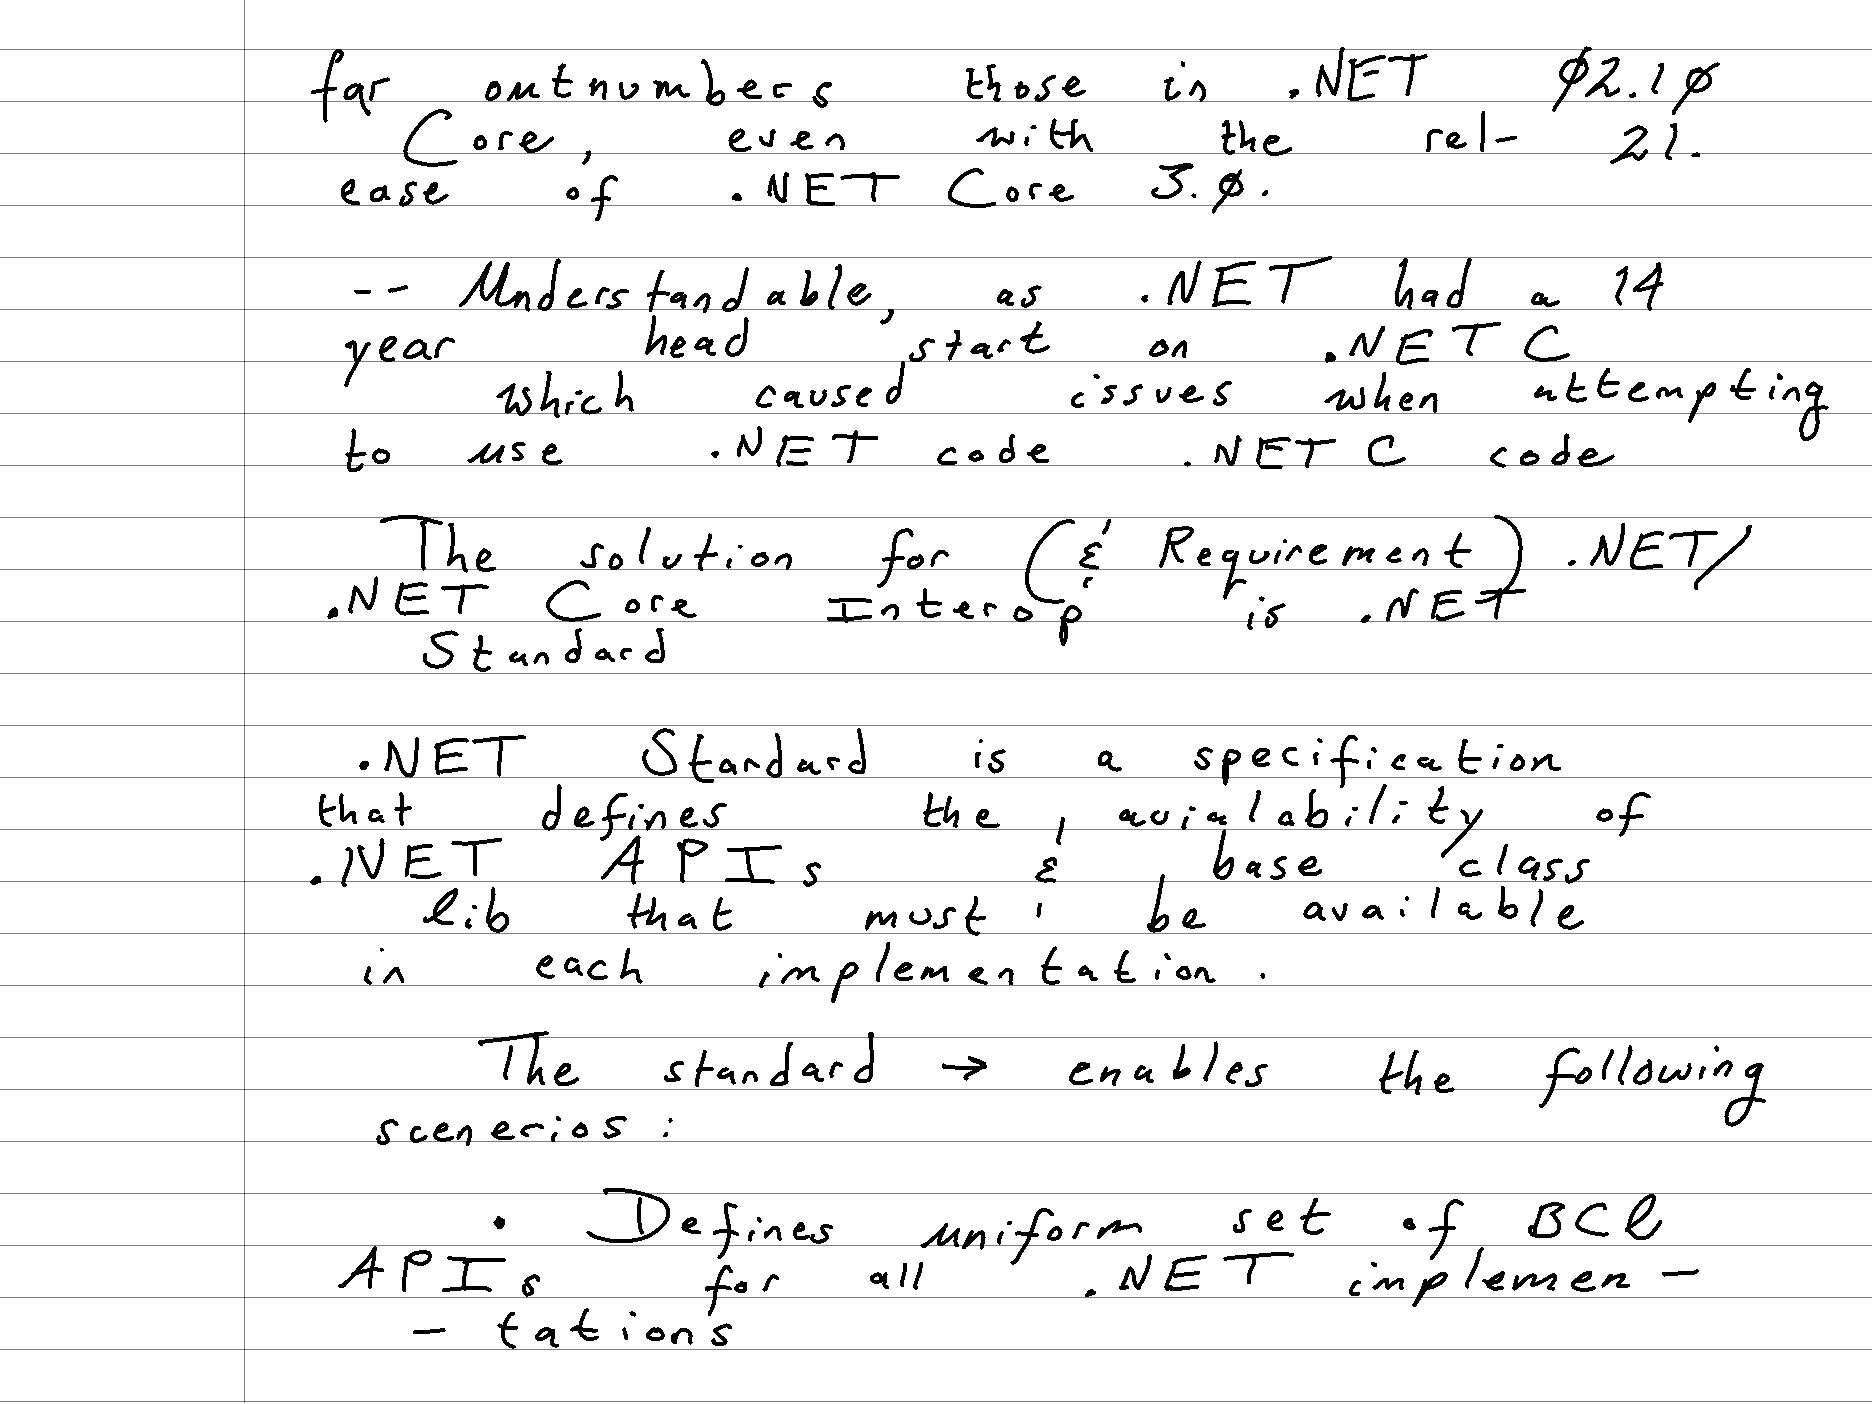 far outnumbers those in .NET 02.10
Core, even with the rel- 21.
ease of .NET Core 3.0.
-- Understandable, as .NET had a 14
year head start on .NET C
which caused issues when attempting
to use .NET code .NET C code
The solution for (& Requirement) .NET/
.NET Core Interop is .NET
Standard
.NET Standard is a specification
that defines the avialability of
.NET APIs & base class
lib that must be available
in each implementation.
The standard → enables the following
scenerios:
• Defines uniform set of BCl
APIs for all .NET implemen-
- tations